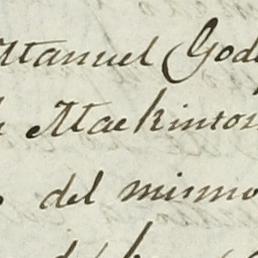 Manuel God
Mackintos
del mismo